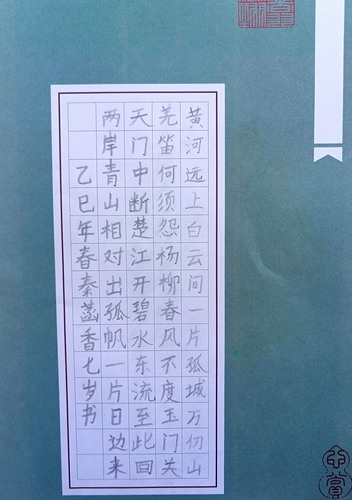 黄河远上白云间一片孤城万仞山
羌笛何须怨杨柳春风不度玉门关
天门中断楚江开碧水东流至此回
两岸青山相对出孤帆一片日边来
乙巳年春秦菡香七岁书